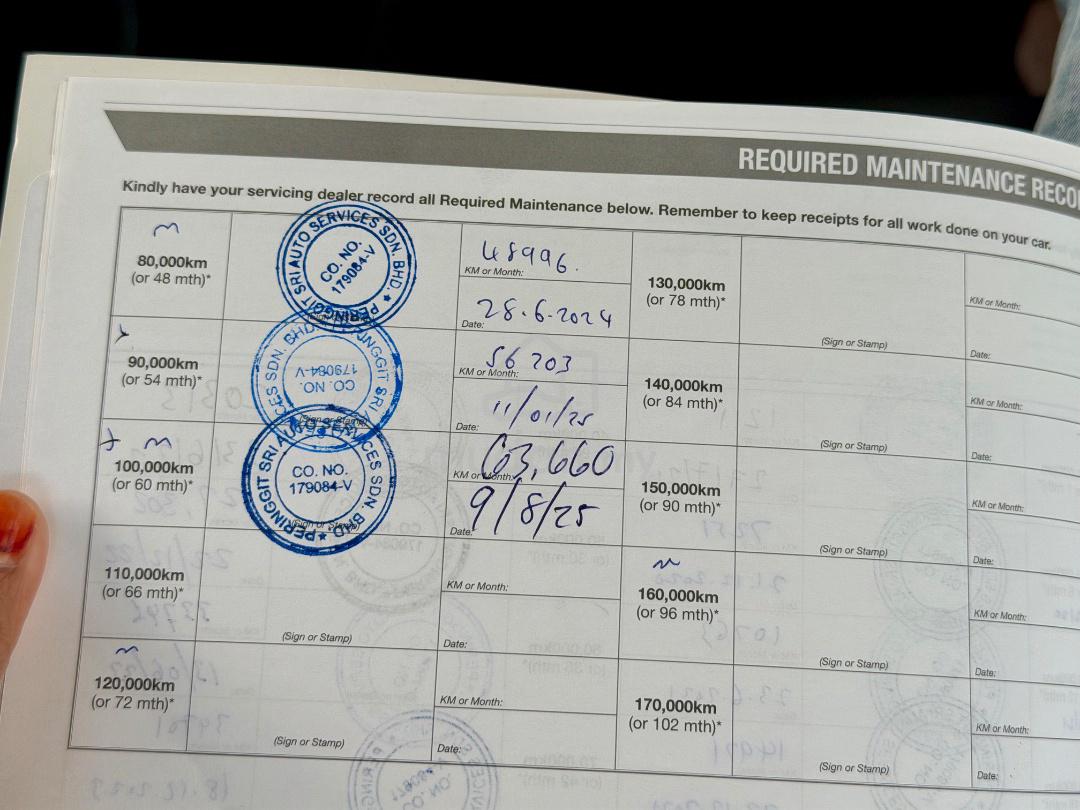 REQUIRED MAINTENANCE RECO
Kindly have your servicing dealer record all Required Maintenance below. Remember to keep receipts for all work done on your car.
80,000km
(or 48 mth)*
PERINGGIT SRI AUTO SERVICES SDN. BHD.
CO. NO.
179084-V
48996.
KM or Month:
28.6.2024
Date:
90,000km
(or 54 mth)*
CO. NO.
179084-V
(Sign or Stamp)
56 203
KM or Month:
11/01/25
Date:
100,000km
(or 60 mth)*
PERINGGIT SRI AUTO SERVICES SDN. BHD.
CO. NO.
179084-V
(Sign or Stamp)
63,660
KM or Month:
9/8/25
Date:
110,000km
(or 66 mth)*
(Sign or Stamp)
KM or Month:
Date:
120,000km
(or 72 mth)*
(Sign or Stamp)
KM or Month:
Date:
130,000km
(or 78 mth)*
(Sign or Stamp)
KM or Month:
Date:
140,000km
(or 84 mth)*
(Sign or Stamp)
KM or Month:
Date:
150,000km
(or 90 mth)*
(Sign or Stamp)
KM or Month:
Date:
160,000km
(or 96 mth)*
(Sign or Stamp)
KM or Month:
Date:
170,000km
(or 102 mth)*
(Sign or Stamp)
KM or Month:
Date: